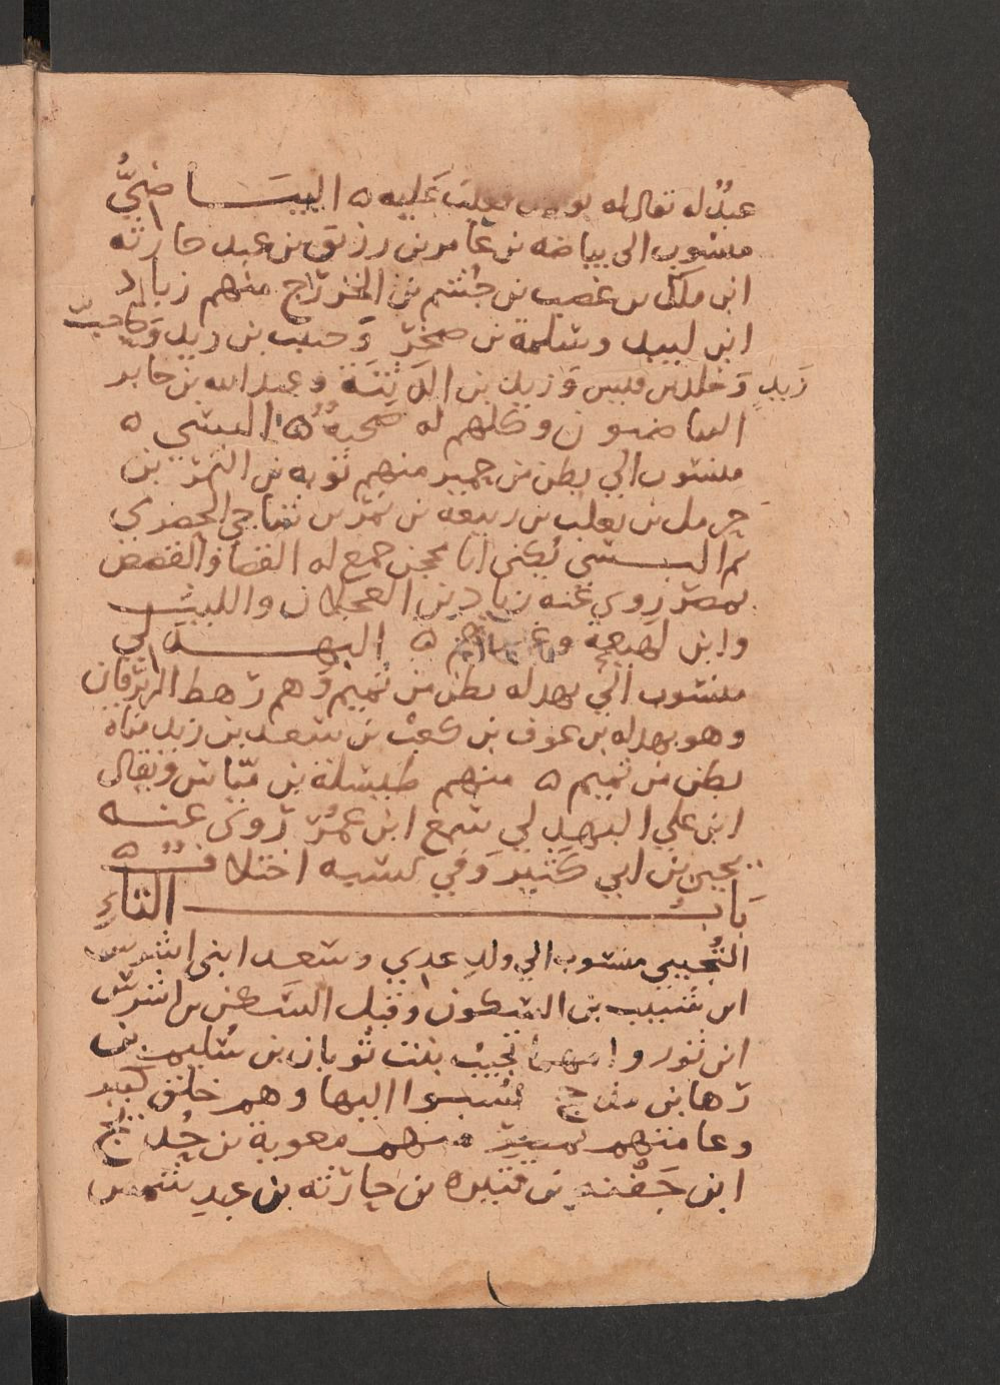 عبدٌ له تقال له فعلبَ عَليه ه البيَـاضِيُّ
منسُوب الى بياضه بن عَامر بن رزيق بن عبد حارثه
ابن ملك بن غضب بن جُشم بن الخزرَج منهم زياد
ابن لبيد وسَلمة بن صخرٍ وَحبيب بن زيد وَ
زَيدٍ وَخلد بن قيس وَزيد بن الدَثِنَة وعبد الله بن جابر
البياضيون وكلهم له صحبةٌ ه البَسّي ه
منسُوب الي بطن من حمير منهم توبه بن النَمر بن
حرمل بن تغلب بن ربيعه بن نمر بن شَاجي الحضرمي
ثم البـسّي يُكنى ابا محجن جمع له القضا والقصص
بمصرَ رَوي عَنه زياد بن العجلان والليث
وابن لهيعه وغيرهم ه البهـدَلي
منسُوب الي بهدله بطن من تميم وَهم رَهط الزِبرقان
وهو بهدله بن عوف بن كعبْ بن سَعد بن زيد مناة
بطن من تميم ه منهم طيسَلة بن مَيّاس وَيقال
ابن علي البهدلي سَمع ابن عمَرَ رَوى عنـه
يحيى بن ابي كَثير وَفي نسبه اختلافٌ ه
بَابُ التاءِ
التُجيبي منسُوب الي ولدِ عدِي وسَعد ابني اشرس
ابن شبيب بن السَكون وقيل السَكن بن اشرسَ
ابن ثور وامهما تجيبُ بنت ثوبان بن سُليم بن
رَها بن مذحج نُسبوا اليها وهم خلق كبير
وعامتهم بمصرَ منهم معوية بن حُديج
ابن جَفنه بن قتيره بن حارثه بن عبدِ شمس